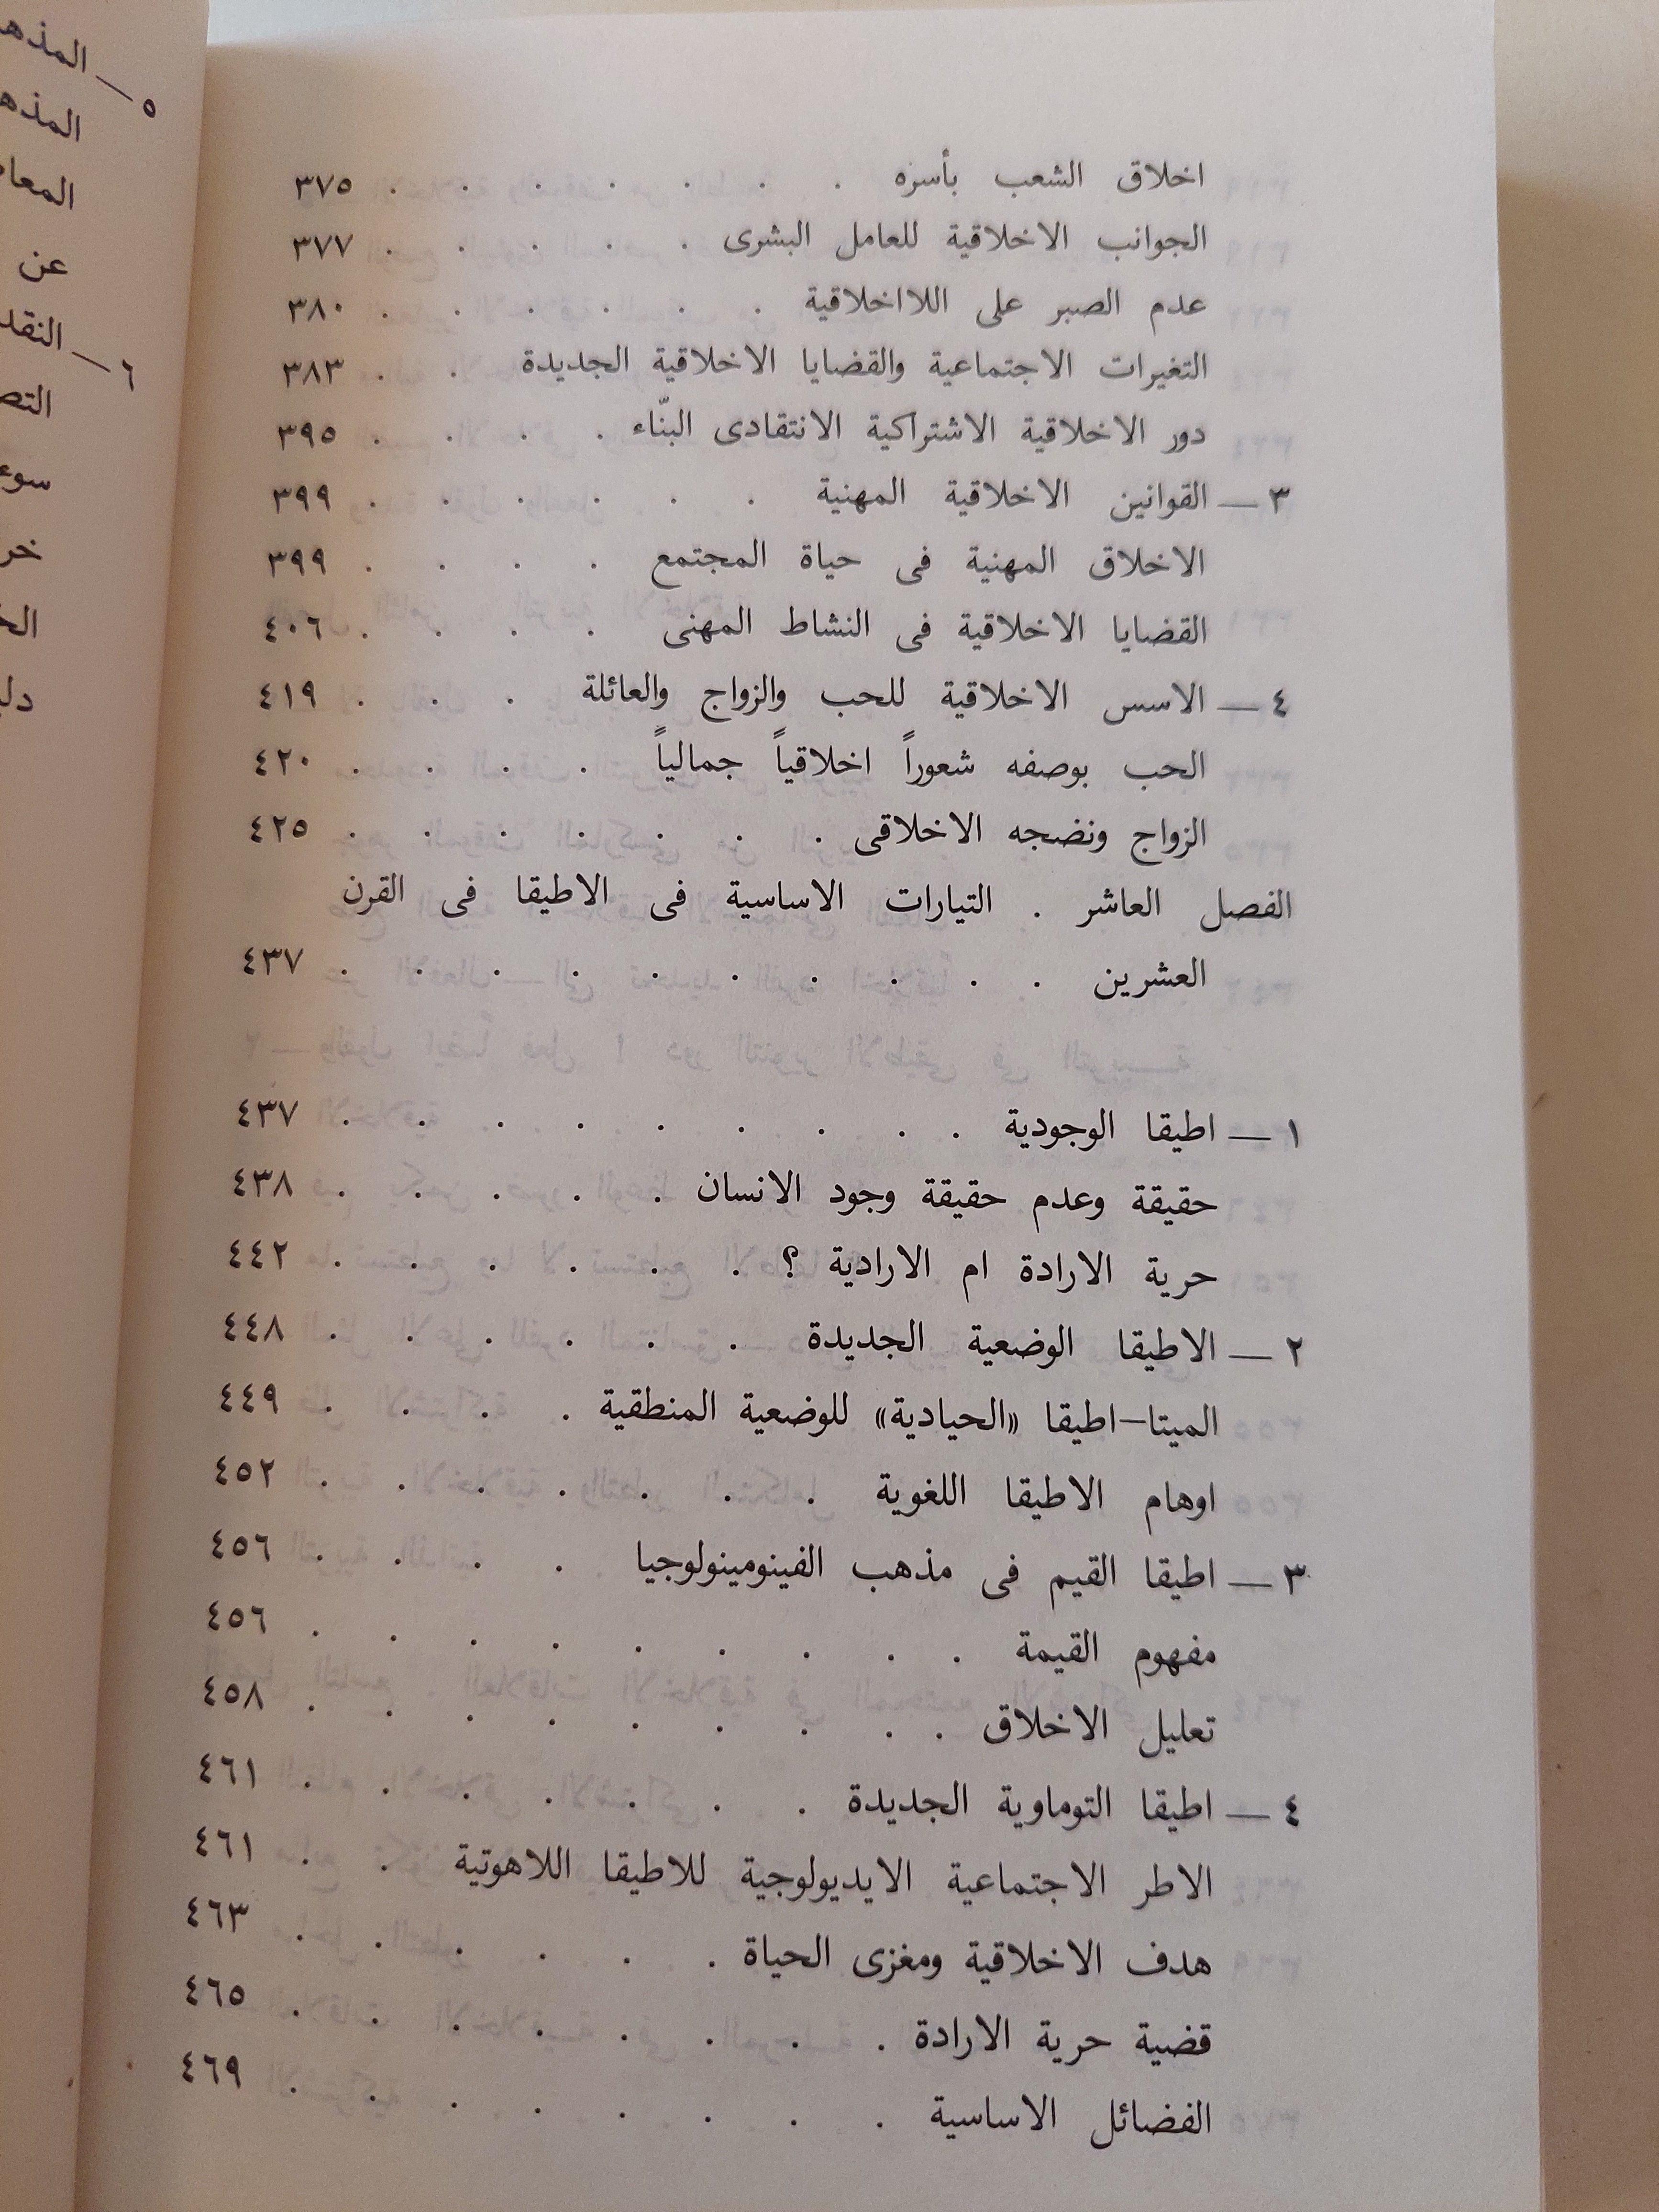 اخلاق الشعب بأسره . . . . . . . ٣٧٥
الجوانب الاخلاقية للعامل البشرى . . . . . ٣٧٧
عدم الصبر على اللااخلاقية . . . . . . ٣٨٠
التغيرات الاجتماعية والقضايا الاخلاقية الجديدة . . ٣٨٣
دور الاخلاقية الاشتراكية الانتقادى البنّاء . . . . ٣٩٥
٣ — القوانين الاخلاقية المهنية . . . . . . ٣٩٩
الاخلاق المهنية فى حياة المجتمع . . . . ٣٩٩
القضايا الاخلاقية فى النشاط المهنى . . . . ٤٠٦
٤ — الاسس الاخلاقية للحب والزواج والعائلة . . . ٤١٩
الحب بوصفه شعوراً اخلاقياً جمالياً . . . . ٤٢٠
الزواج ونضجه الاخلاقى . . . . . . . ٤٢٥
الفصل العاشر . التيارات الاساسية فى الاطيقا فى القرن
العشرين . . . . . . . . . . ٤٣٧
١ — اطيقا الوجودية . . . . . . . . . ٤٣٧
حقيقة وعدم حقيقة وجود الانسان . . . . . ٤٣٨
حرية الارادة ام الارادية ؟ . . . . . . ٤٤٢
٢ — الاطيقا الوضعية الجديدة . . . . . . ٤٤٨
الميتا–اطيقا «الحيادية» للوضعية المنطقية . . . . ٤٤٩
اوهام الاطيقا اللغوية . . . . . . . ٤٥٢
٣ — اطيقا القيم فى مذهب الفينومينولوجيا . . . . ٤٥٦
مفهوم القيمة . . . . . . . . . ٤٥٦
تعليل الاخلاق . . . . . . . . . ٤٥٨
٤ — اطيقا التوماوية الجديدة . . . . . . . ٤٦١
الاطر الاجتماعية الايديولوجية للاطيقا اللاهوتية . . ٤٦١
هدف الاخلاقية ومغزى الحياة . . . . . . ٤٦٣
قضية حرية الارادة . . . . . . . . ٤٦٥
الفضائل الاساسية . . . . . . . . ٤٦٩
٥ —
عن
٦ —